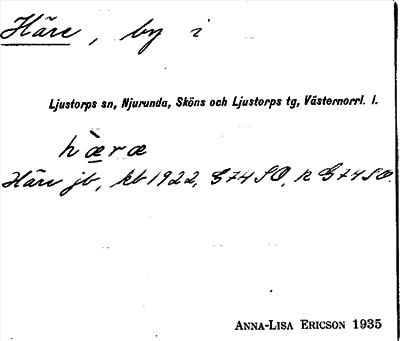 Häre, by i
Ljustorps sn, Njurunda, Sköns och Ljustorps tg, Västernorrl. l.
hæ̀ræ
Häre jb, kb 1922, G74SO, k G74SO.
ANNA-LISA ERICSON 1935